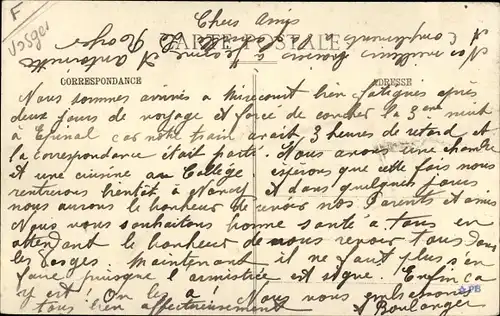 F
Vosges
Chers Amis
CARTE POSTALE
CORRESPONDANCE
ADRESSE
Nous sommes arrivés à Mirecourt bien fatigués après
deux jours de voyage et force de coucher la 3eme nuit
à Epinal car notre train avait 3 heures de retard et
la correspondance était parti. Nous avons une chambre
et une cuisine au Collège. espérons que cette fois nous
rentrerons bientôt à Nancy et dans quelques jours
nous aurons le bonheur de revoir nos Parents et amis
Nous vous souhaitons bonne santé à tous en
attendant le bonheur de vous revoir tous dans
les Vosges. Maintenant il ne faut plus s'en
faire puisque l'armistice est signé. Enfin ça
y est On les a! Nous vous embrassons
tous bien affectueusement
Boulanger
Nos meilleurs baisers à Antoinette
à Roger
PB